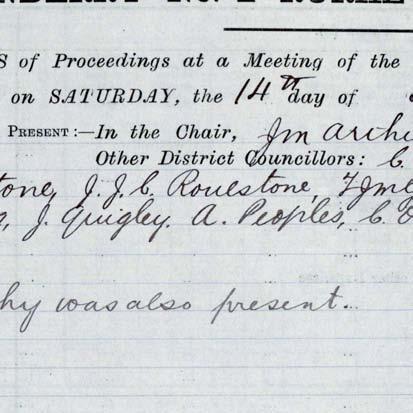 S of Proceedings at a Meeting of the
on SATURDAY, the 14th day of
PRESENT:—In the Chair, Jm Arch
Other District Councillors: C
tone, J. J. C. Rouestone,
J. Quigley. A. Peoples, C.
hy was also present.